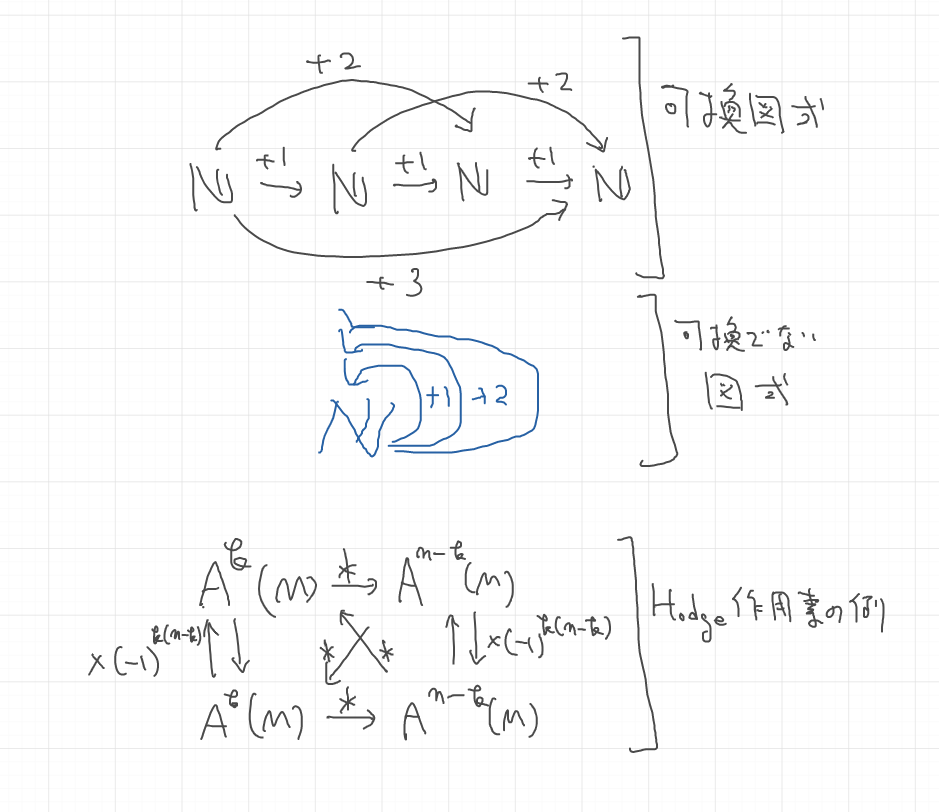 +2
+2
N +1 → N +1 → N +1 → N
+3
可換図式
N +1 +2
可換でない
図式
A^k(M) * → A^{n-k}(M)
×(-1)^{k(n-k)} * * ×(-1)^{k(n-k)}
A^k(M) * → A^{n-k}(M)
Hodge作用素の例